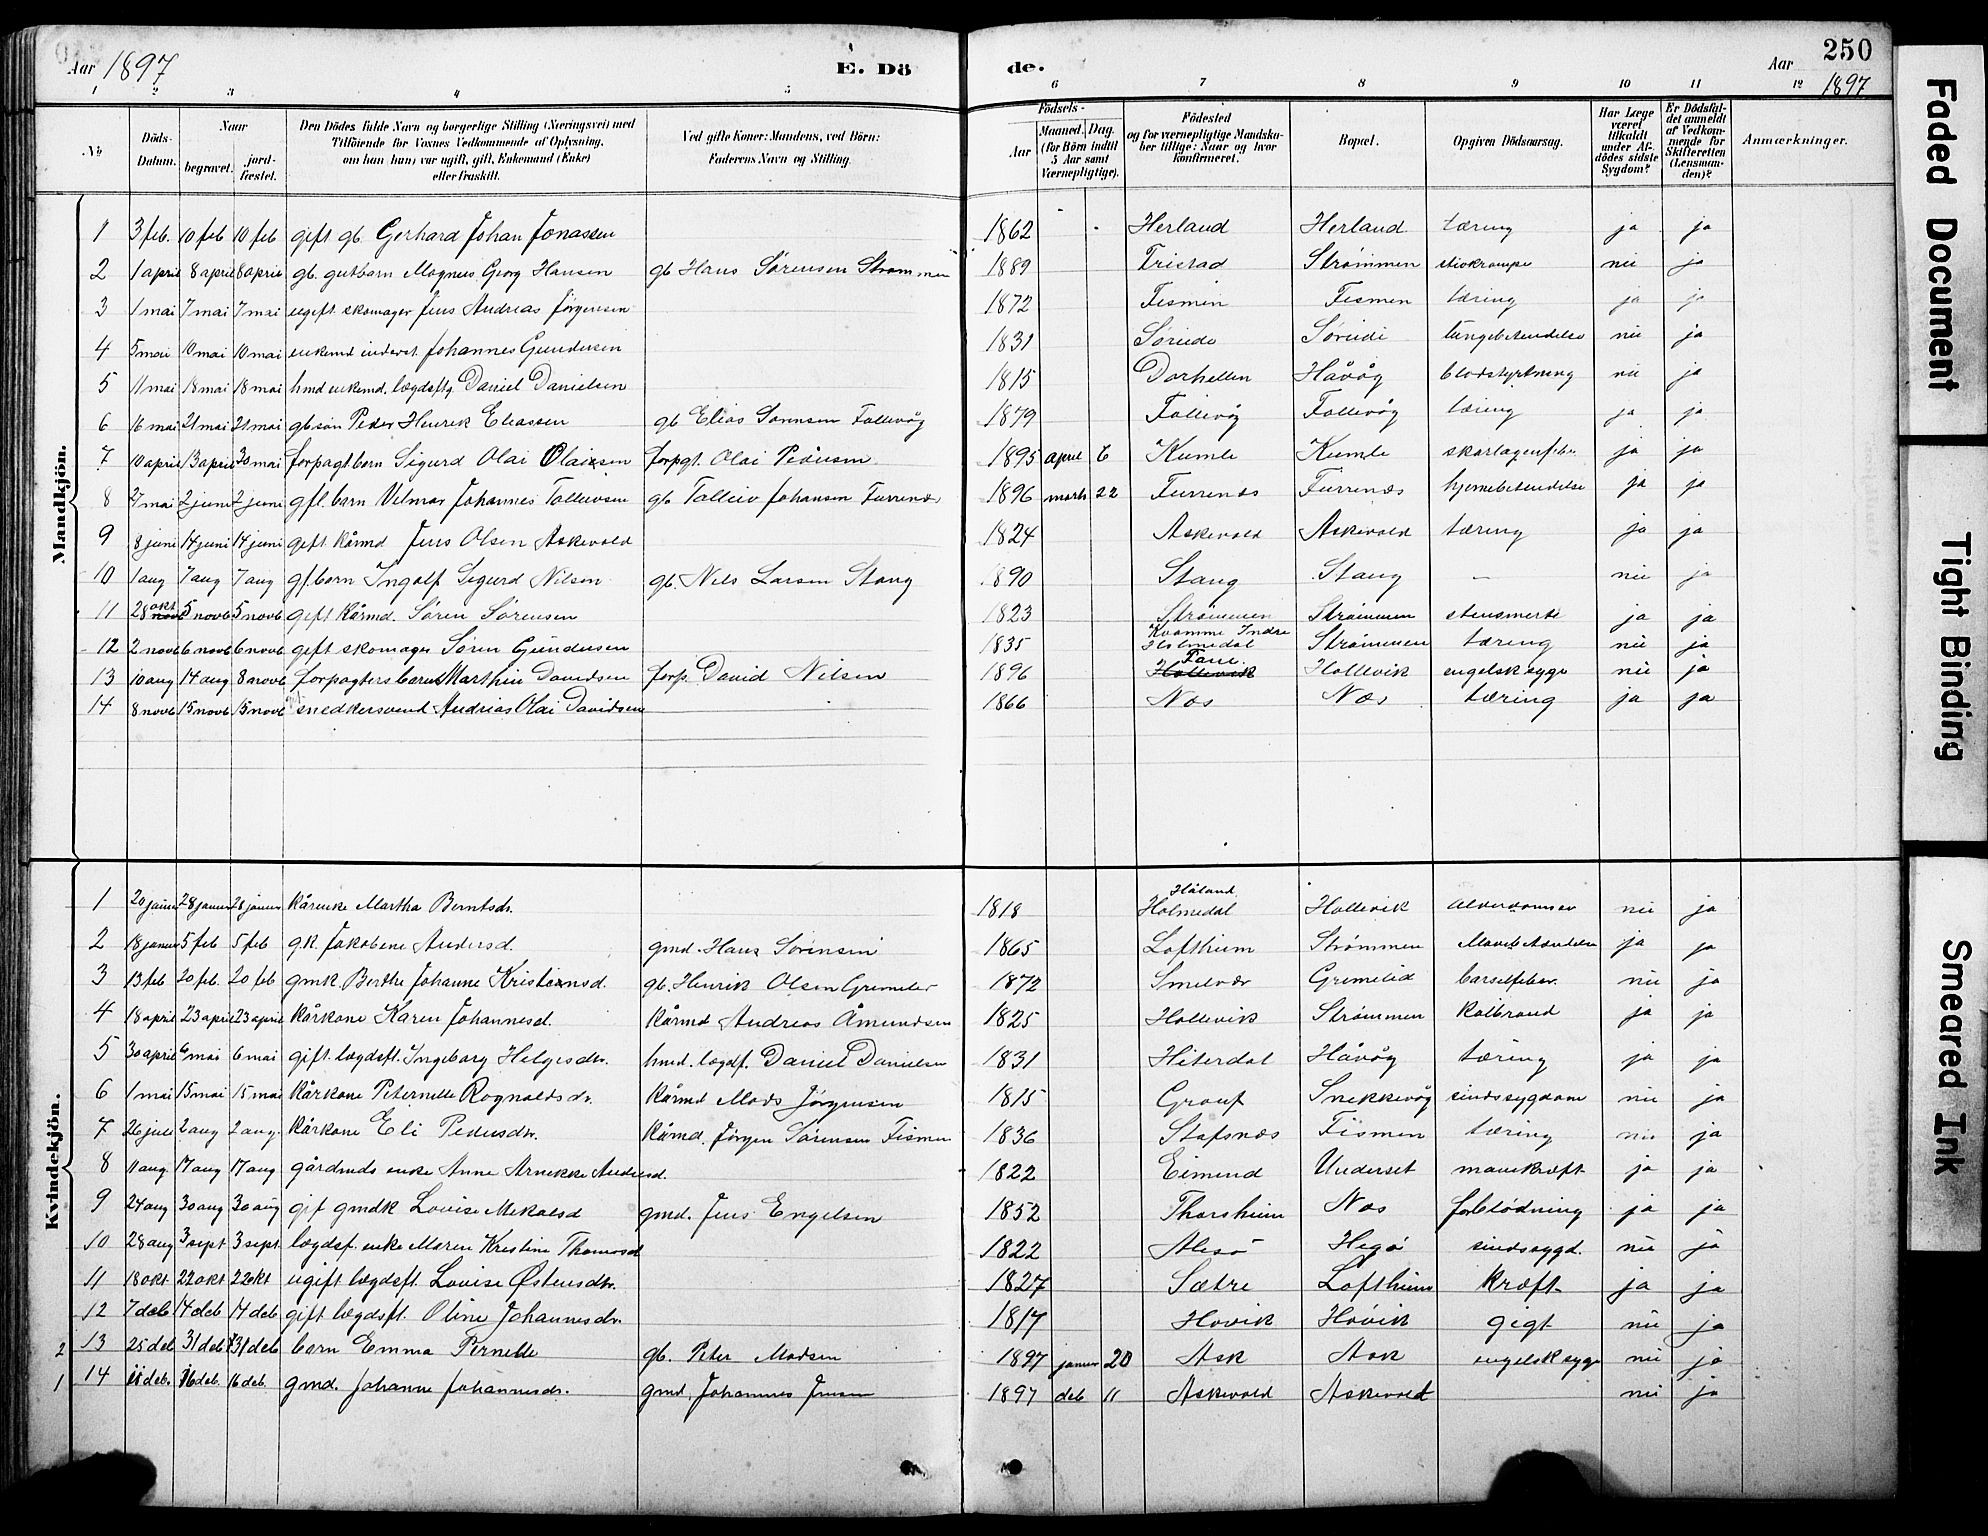 Aar 1897 E. Dö de. Aar 1897 250
1 2 3 4 5 6 7 8 9 10 11 12
No Döds-Datum. Naar begravet. jord-fæstet. Den Dödes fulde Navn og borgerlige Stilling (Næringsvei) med Tilföiende for Voxnes Vedkommende af Oplysning, om han (hun) var ugift, gift, Enkemand (Enke) eller fraskilt. Ved gifte Koner: Mandens, ved Börn: Faderens Navn og Stilling. Födsels- Aar Maaned. Dag. (for Börn indtil 5 Aar samt Værnepligtige). Födested og for værnepligtige Mandskaber tillige: Naar og hvor konfirmeret. Bopæl. Opgiven Dödsaarsag. Har Læge været tilkaldt under Afdödes sidste Sygdom? Er Dödsfaldet anmeldt af Vedkommende for Skifteretten (Lensmanden)? Anmærkninger.
Mandkjön.
1 3 feb. 10 feb 10 feb gift gb. Gerhard Johan Jonassen 1862 Herland Herland tæring ja ja
2 1 april 8 april 8 april gb. gutbarn Magnus Georg Hansen gb Hans Sörensen Strömmen 1889 Tristad Strömmen stivkrampe nei ja
3 1 mai 7 mai 7 mai ugift skomager Jens Andreas Jörgensen 1872 Tismen Tismen tæring ja ja
4 5 mai 10 mai 10 mai enkemd inderst Johannes Gundersen 1831 Söreide Söreide lungebetendelse nei ja
5 11 mai 18 mai 18 mai hmd enkemd. lægdsl. Daniel Danielsen 1815 Dorhellen Håvåg blodstyrtning nei ja
6 16 mai 21 mai 21 mai gb sön Peder Henrik Eliassen gb Elias Sannsen Follevåg 1879 Follevåg Follevåg tæring ja ja
7 10 april 13 april 30 mai forpagt barn Sigurd Olai Olaisen forpgt. Olai Pedersen 1895 april 6 Kumle Kumle skarlagenfeber ja ja
8 27 mai 2 juni 2 juni gfl. barn Vilmar Johannes Talleivsen gb Talleiv Johansen Furrenæs 1896 marts 22 Furrenæs Furrenæs hjernebetendelse ja ja
9 8 juni 14 juni 14 juni gift kårmd Jens Olsen Askevold 1824 Askevold Askevold tæring ja ja
10 1 aug 7 aug 7 aug gf. barn Ingolf Sigurd Nilsen gb. Nils Larsen Stang 1890 Stang Stang — nei ja
11 28 okt novb 5 novb 5 novb gift kårmd. Sören Sörensen 1823 Strömmen Strömmen stensmerte ja ja
12 2 novb 6 novb 6 novb gift skomager Sören Gundersen 1835 Kvamme Indre Holmedal Strömmen tæring nei ja
13 10 aug 14 aug 8 novb forpagters barn Marthin Davidsen forp. David Nilsen 1896 Fane. Hollevik Hollevik engelsk syge nei ja
14 8 novb 15 novb 15 novb snedkersvend Andreas Olai Davidsen 1866 Næs Næs tæring ja ja
Kvindekjön.
1 20 januar 28 januar 28 januar kårenke Martha Berntsdr. 1818 Håland Holmedal Hollevik alderdomssv nei ja
2 18 januar 5 feb 5 feb g.k. Jakobene Andersd. gmd. Hans Sörensen 1865 Loftheim Strömmen ja ja
3 13 feb 20 feb. 20 feb gmk. Berthe Johanne Kristiansd. gb. Henrik Olsen Gremelid 1872 Smelvær Gremelid barselfeber nei ja
4 18 april 23 april 23 april kårkone Karen Johannesd. kårmd Andreas Åmundsen 1825 Hollevik Strömmen koldbrand ja ja
5 30 april 6 mai 6 mai gift. lægdsl. Ingeborg Helgesdr. hmd. lægdl. Daniel Danielsen 1831 Hiterdal Håvåg tæring ja ja
6 1 mai 15 mai 15 mai kårkone Peternelle Rognaldsdr. kårmd Mads Jörgensen 1815 Grauf Snekkevåg sindssygdom nei ja
7 26 juli 2 aug 2 aug. kårkone Eli Pedersdr. kårmd. Jörgen Sörensen Tismen 1836 Stafsnæs Tismen tæring nei ja
8 11 aug 17 aug 17 aug gårdmds enke Anne Arnekke Andersd. 1822 Eimind Underset mavekræft ja ja
9 24 aug 30 aug 30 aug gif gmdk Lovise Mikalsd gmd. Jens Engelsen 1852 Thorsheim Næs forblödning ja ja
10 28 aug 3 sept 3 sept. lægdsl. enke Maren Kristine Thomasd 1822 Alesö Hegö sindssygd. nei ja
11 18 okt 22 okt 22 okt ugift lægdsl. Lovise Østensdtr. 1827 Sætre Loftheim kræft ja ja
12 7 deb 14 deb 14 deb gift lægdsl. Oline Johannesdr. 1817 Hovik Hovik gigt nei ja
2 13 25 deb 31 deb 31 deb barn Emma Pernelle gb. Peter Madsen 1897 januar 20 Ask Ask engelsk syge nei ja
1 14 11 deb. 16 deb. 16 deb. gmd. Johanne Johannesdr. gmd. Johannes Jensen 1897 deb 11 Askevold Askevold nei ja
Faded Document
Tight Binding
Smeared Ink